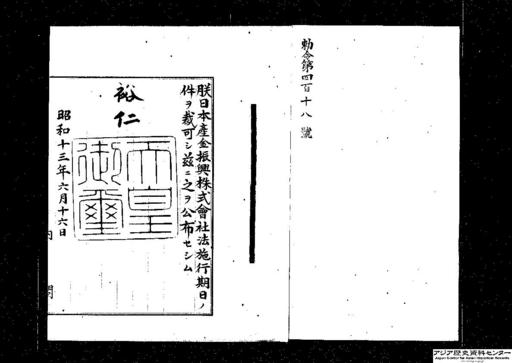 勅令第四百十八號
朕日本產金振興株式會社法施行期日ノ
件ヲ裁可シ茲ニ之ヲ公布セシム
裕仁
天皇
御璽
昭和十三年六月十六日
アジア歴史資料センター
Japan Center for Asian Historical Records